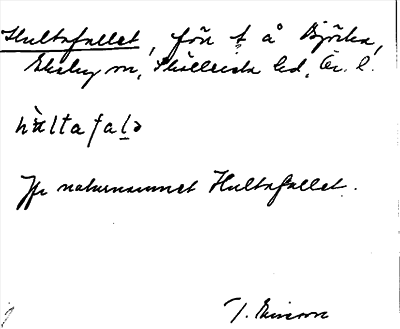 Hultafallet, förr t å Björka,
Ekeby sn, Sköllersta hd, Ör. l.
hu̇ltafalə
Jfr naturnamnet Hultafallet.
T. Ericson